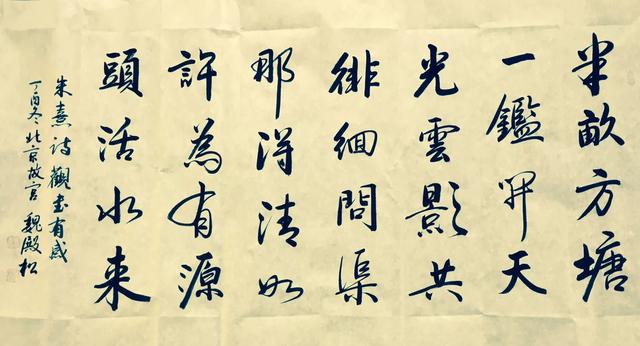 半畝方塘
一鑑開天
光雲影共
徘徊問渠
那得清如
許為有源
頭活水来
朱熹詩觀書有感
丁酉冬北京故宫 魏殿松